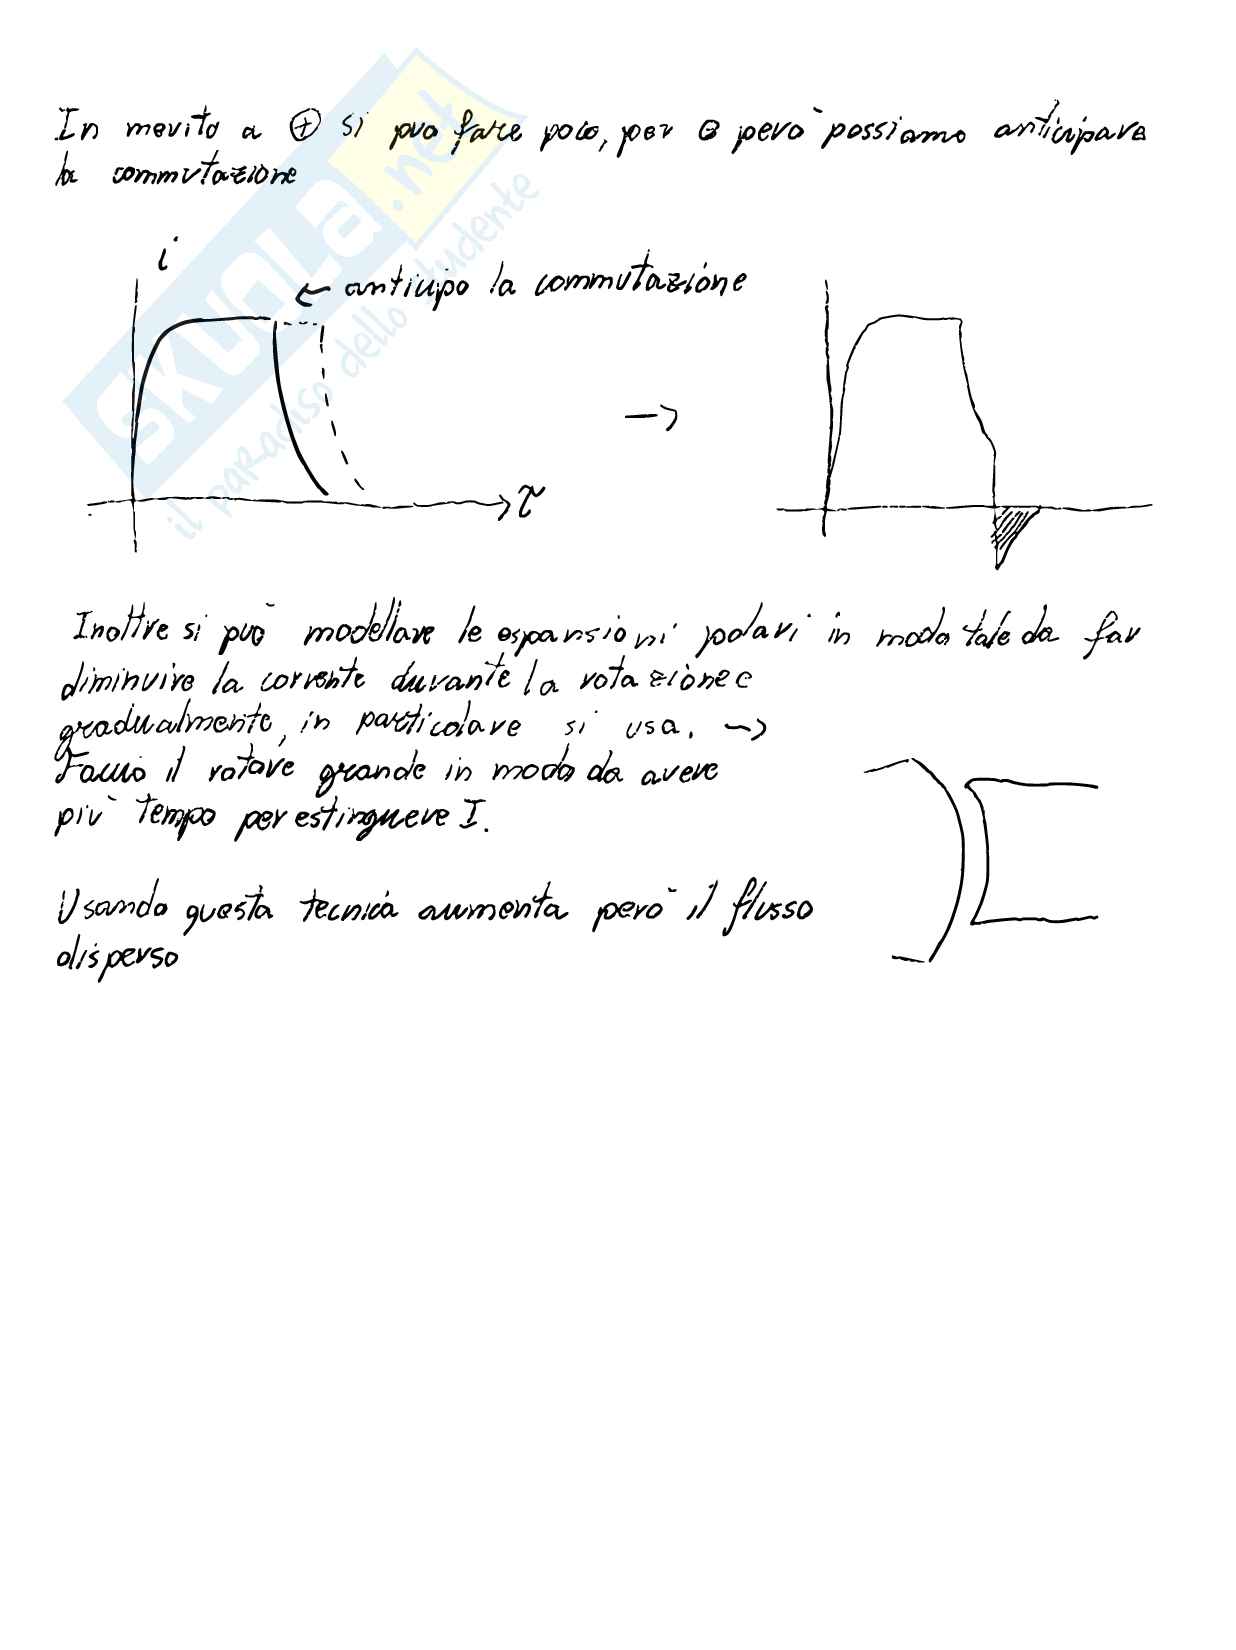 In merito a ⊕ si può fare poco, per ⊖ però possiamo anticipare
la commutazione
i
← anticipo la commutazione
→
τ
Inoltre si può modellare le espansioni polari in modo tale da far
diminuire la corrente durante la rotazione e
gradualmente, in particolare si usa. →
Faccio il rotore grande in modo da avere
più tempo per estinguere I.
Usando questa tecnica aumenta però il flusso
disperso
SKUOLA.net
il paradiso dello studente